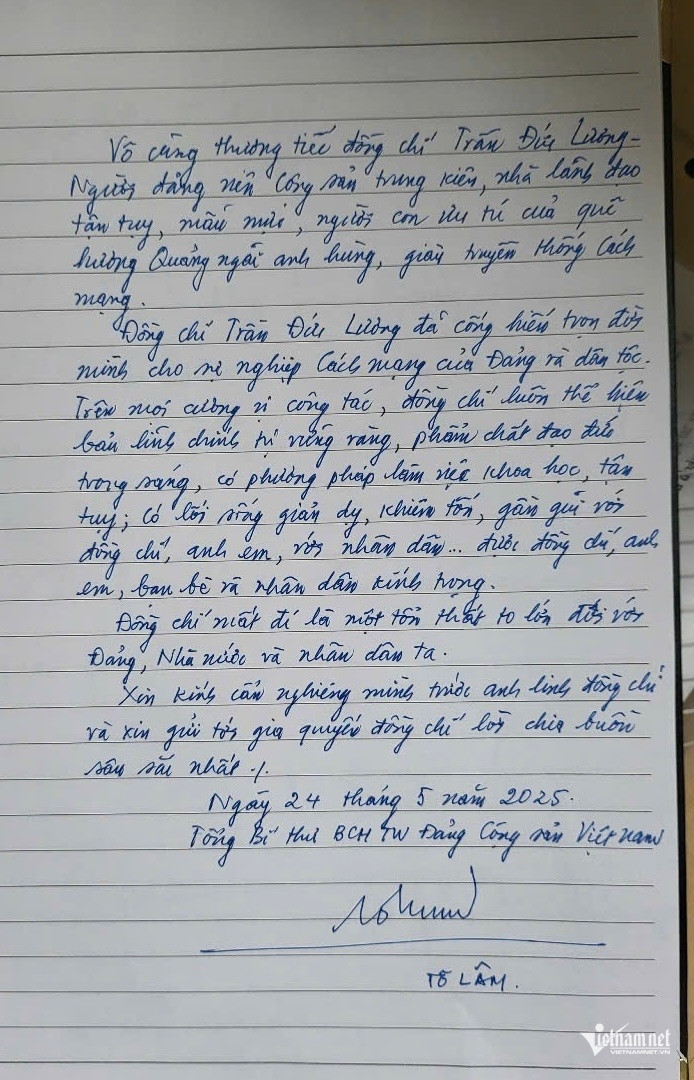 Vô cùng thương tiếc đồng chí Trần Đức Lương-
Người đảng viên Cộng sản trung kiên, nhà lãnh đạo
tận tụy, mẫu mực, người con ưu tú của quê
hương Quảng ngãi anh hùng, giàu truyền thống Cách
mạng.
Đồng chí Trần Đức Lương đã cống hiến trọn đời
mình cho sự nghiệp Cách mạng của Đảng và dân tộc.
Trên mọi cương vị công tác, đồng chí luôn thể hiện
bản lĩnh chính trị vững vàng, phẩm chất đạo đức
trong sáng, có phương pháp làm việc khoa học, tận
tụy; có lối sống giản dị, khiêm tốn, gần gũi với
đồng chí, anh em, với nhân dân... được đồng chí, anh
em, bạn bè và nhân dân kính trọng.
Đồng chí mất đi là một tổn thất to lớn đối với
Đảng, Nhà nước và nhân dân ta.
Xin kính cẩn nghiêng mình trước anh linh đồng chí
và xin gửi tới gia quyến đồng chí lời chia buồn
sâu sắc nhất ./.
Ngày 24 tháng 5 năm 2025.
Tổng Bí thư BCH TW Đảng Cộng sản Việt nam
TÔ LÂM.
vietnamnet
VIETNAMNET.VN